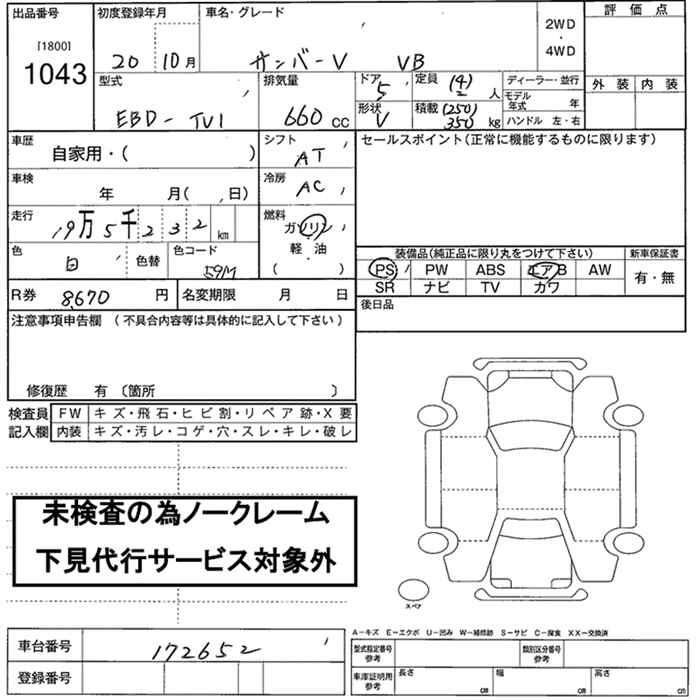 出品番号 初度登録年月 車名・グレード 2WD・4WD 評価点
[1800]
1043 20 10月 サンバーV VB 外装 内装
型式 排気量 ドア 5 定員 (4) 人 ディーラー・並行
モデル年式 年
EBD-TV1 660 cc 形状 V 積載 (250) 350 kg ハンドル 左・右
車歴 自家用・( ) シフト AT セールスポイント(正常に機能するものに限ります)
車検 年 月( 日) 冷房 AC
走行 19万5千232 km 燃料 ガソリン・軽油 ( )
色 白 色替 色コード 59M 装備品(純正品に限り丸をつけて下さい) 新車保証書
PS PW ABS エアB AW 有・無
SR ナビ TV カワ
R券 8,670 円 名変期限 月 日 後日品
注意事項申告欄 (不具合内容等は具体的に記入して下さい)
修復歴 有 〔箇所 〕
検査員 FW キズ・飛石・ヒビ割・リペア跡・X要
記入欄 内装 キズ・汚レ・コゲ・穴・スレ・キレ・破レ
未検査の為ノークレーム
下見代行サービス対象外
スペア
A-キズ E-エクボ U-凹み W-補修跡 S-サビ C-腐食 XX-交換済
車台番号 172652 型式指定番号 参考 類別区分番号 参考
登録番号 車庫証明用 参考 長さ cm 幅 cm 高さ cm